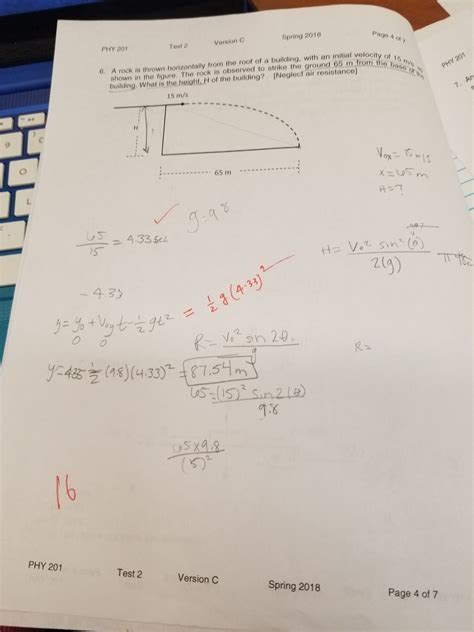 PHY 201 Test 2 Version C Spring 2018 Page 4 of 7
6. A rock is thrown horizontally from the roof of a building, with an initial velocity of 15 m/s
shown in the figure. The rock is observed to strike the ground 65 m from the base of the
building. What is the height, H of the building? [Neglect air resistance]
15 m/s
H
65 m
PHY 201
7. An
V₀ₓ = 15 m/s
x = 65 m
H = ?
g = 9.8
65/15 = 4.33 sec
H = V₀² sin²(θ) / 2(g)
-4.33
= 1/2 g (4.33)²
y = y₀ + V₀y t - 1/2 gt²
0 0
R = V₀² sin 2θ / g
R =
(9.8)(4.33)² = 87.54 m
65 = (15)² sin 2(θ) / 9.8
65 x 9.8 / (15)²
16
PHY 201 Test 2 Version C Spring 2018 Page 4 of 7